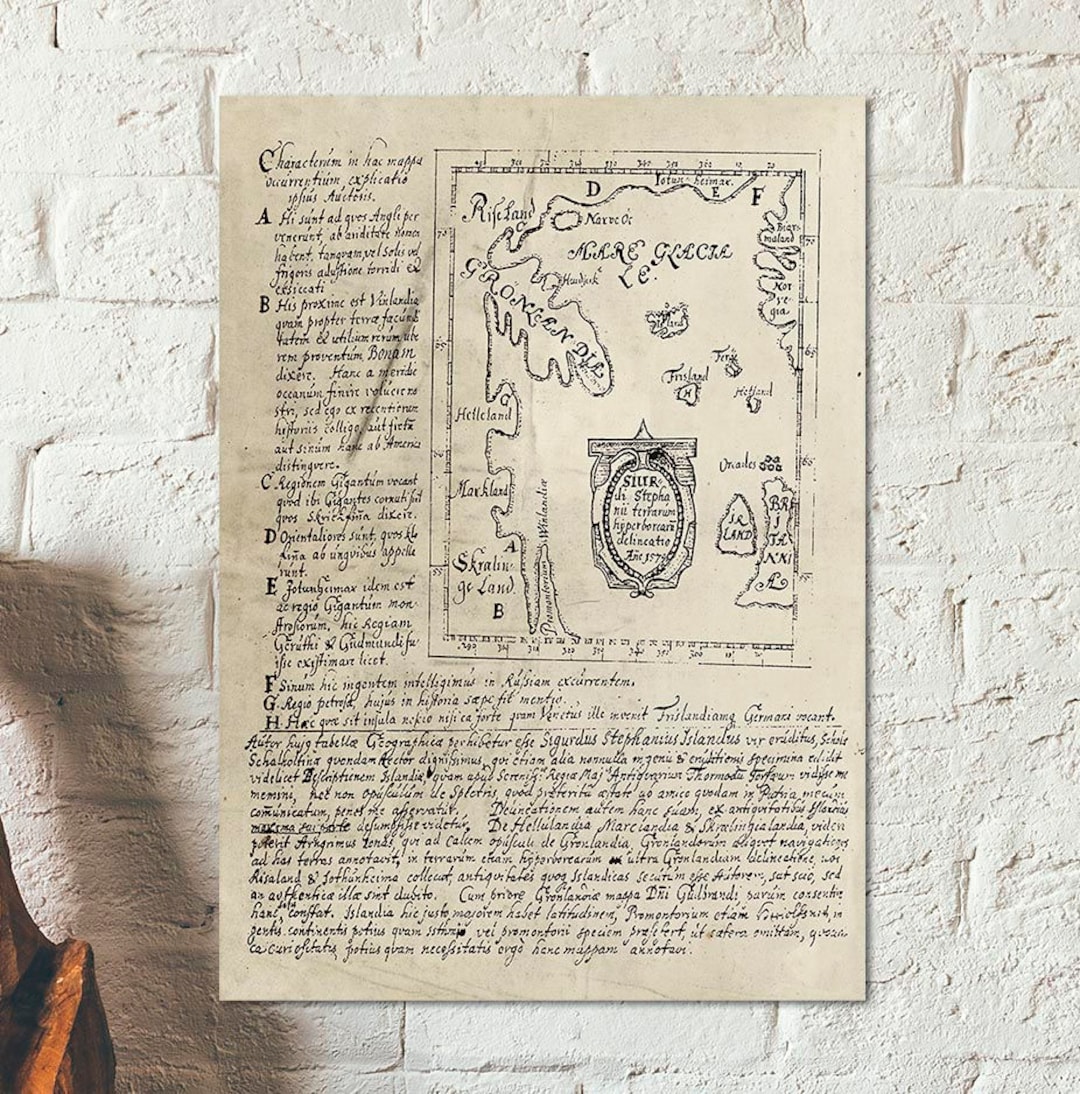 Characterum in hac mappa
occurrentium explicatio
ipsius Auctoris.
A Hi sunt ad quos Angli per
venerunt, ab ariditate nomen
habent, tanquam vel Solis vel
frigoris adustione torridi et
exsiccati
B His proxime est Vinlandia
quam propter terræ fæcundi
tatem et utilium rerum ube
rem proventum, Bonam
dixere. Hanc a meridie
oceanum finire voluere no
stri, sed ego ex recentiorum
historiis colligo, aut fretum
aut sinum hanc ab America
distinguere.
C Regionem Gigantum vocant
quod ibi Gigantes cornuti sint
quos Skrickfinna dixere.
D Orientaliores sunt, quos Klo
fina ab unguibus appella
runt.
E Jotunheimar idem est
ac regio Gigantum mon
strosorum, hic Regiam
Geruthi & Gudmundi fu
isse existimare licet.
F Sinum hic ingentem intelligimus in Russiam excurrentem.
G. Regio petrosa, hujus in historia sæpe fit mentio.
H. Hæc quæ sit insula nescio nisi ea forte quam Venetus ille invenit Frislandiamq Germani vocant.
Autor hujq tabellæ Geographicæ perhibetur esse Sigurdus Stephanius Islandus vir eruditus, Scholæ
Schalholtinæ quondam Rector dignissimus, qui etiam alia nonnulla ingenii & eruditionis specimina edidit
videlicet Descriptionem Islandiæ, quam apud Sereniss. Regiæ Maj. Antiquarium Thormodu Torfæum vidisse me
memini, nec non Opusculum de Spectris, quod præterita æstate ab amico quodam in Patria mecum
comunicatum, penes me asservatur. Delineationem autem hanc suam, ex antiquitatibus Islandicis
desumpsisse videtur. De Hellulandia Marclandia & Skrælingialandia, videri
poterit Arngrimus Jonas, qui ad Calcem opusculi de Gronlandia, Gronlandorum aliquot navigationes
ad has terras annotavit, in terrarum etiam hyperborearum ultra Gronlandiam delineatione,
Risaland & Jothunheima collocat, antiquitates quoq Islandicas secutum esse Autorem, sat scio, sed
an authenticæ illæ sint dubito. Cum priore Gronlandiæ mappa Dni Gudbrandi parum consentire
hanc, constat. Islandia hic justo majorem habet latitudinem, Promontorium etiam Herjolfsnes, in
gentis continentis potius quam isthmi vel promontorii speciem præsefert, ut cætera omittam, quoniam
ea curiositatis potius quam necessitatis ergo hanc mappam annotavi.
D
Jotun heimar.
E
F
Riseland
C
Narve Oe
Biar
maland
MARE GLACIA
LE.
GRONLANDIA
Nor
vegia
Island
Ferö
Frisland
H
Hetland
G
Helleland
Orcades
SIUR
di Stepha
nii terrarum
hyperborearū
delineatio
Añe 1570
Markland
IR
LAND
BRI
TAN
NI
Æ
A
Skralin
ge Land
Promontorium Winlandiæ
B